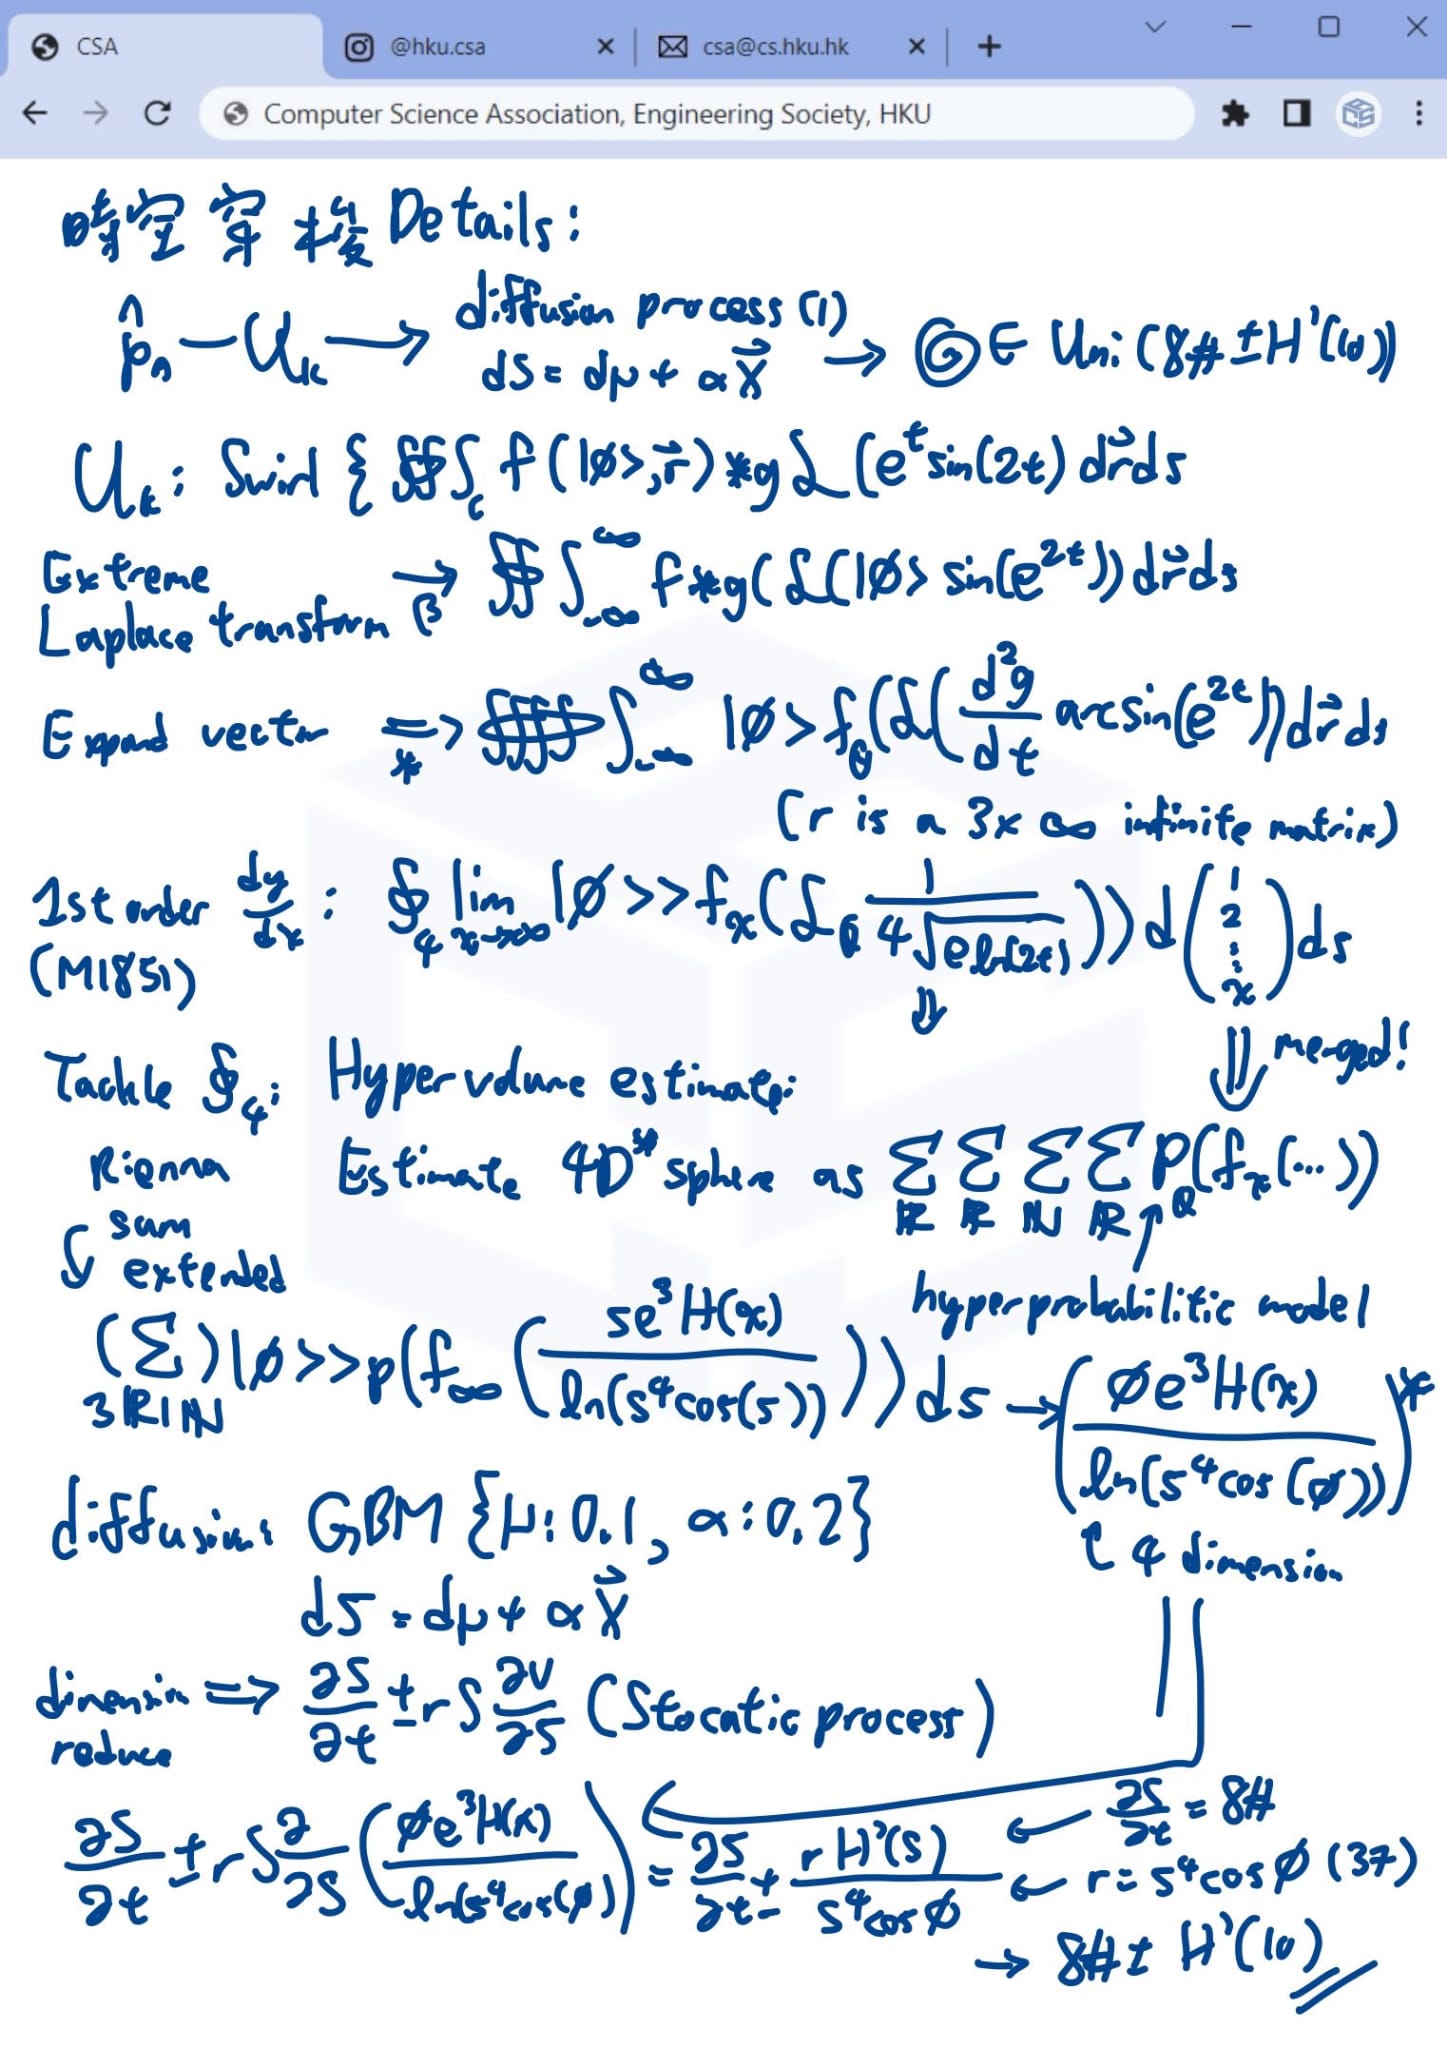 CSA @hku.csa csa@cs.hku.hk
Computer Science Association, Engineering Society, HKU
時空穿梭 Details:
p̂ₙ — Uₖ → diffusion process (1) dS = dμ + αX⃗ → ∈ Uni (8# ± H'(10))
Uₖ: Swirl { ∯∫_c f(|ø>, r⃗) *g ℒ (eᵗ sin(2t) dr⃗ ds
Extreme Laplace transform →_β ∯∫_{-∞}^{∞} f*g(ℒ(|ø> sin(e^{2t})) dr⃗ ds
Expand vector ⇒_* ∫_{-∞}^{∞} |ø> f_θ(ℒ(d²g/dt arcsin(e^{2t})) dr⃗ ds
(r is a 3 x ∞ infinite matrix)
1st order dy/dx : ∮₄ lim_{x→∞} |ø>> fₓ(ℒ 1/(4√(e ln(2t)))) d(1 2 ⋮ x) ds
(M1851)
⇓ merged!
Tackle ∮₄: Hypervolume estimate:
Estimate 4D sphere as Σ_ℝ Σ_ℝ Σ_ℕ Σ_ℝ P_Q(fₓ(...))
Rienna sum extended
hyperprobabilitic model
(Σ)_{3ℝ1ℕ} |ø>> p(f_∞ (se³H(x) / ln(s⁴cos(s)))) ds → (øe³H(x) / ln(s⁴cos(ø)))*
↑ 4 dimension
diffusion: GBM {μ: 0.1, α: 0.2}
dS = dμ + αX⃗
dimension reduce ⇒ ∂S/∂t ± rS ∂V/∂S (Stocatic process)
∂S/∂t ± rS ∂/∂S (øe³H(x) / ln(s⁴cos(ø))) = ∂S/∂t ± rH'(S) / s⁴cosø ← ∂S/∂t = 8#
← r = s⁴cosø (37)
→ 8# ± H'(10)